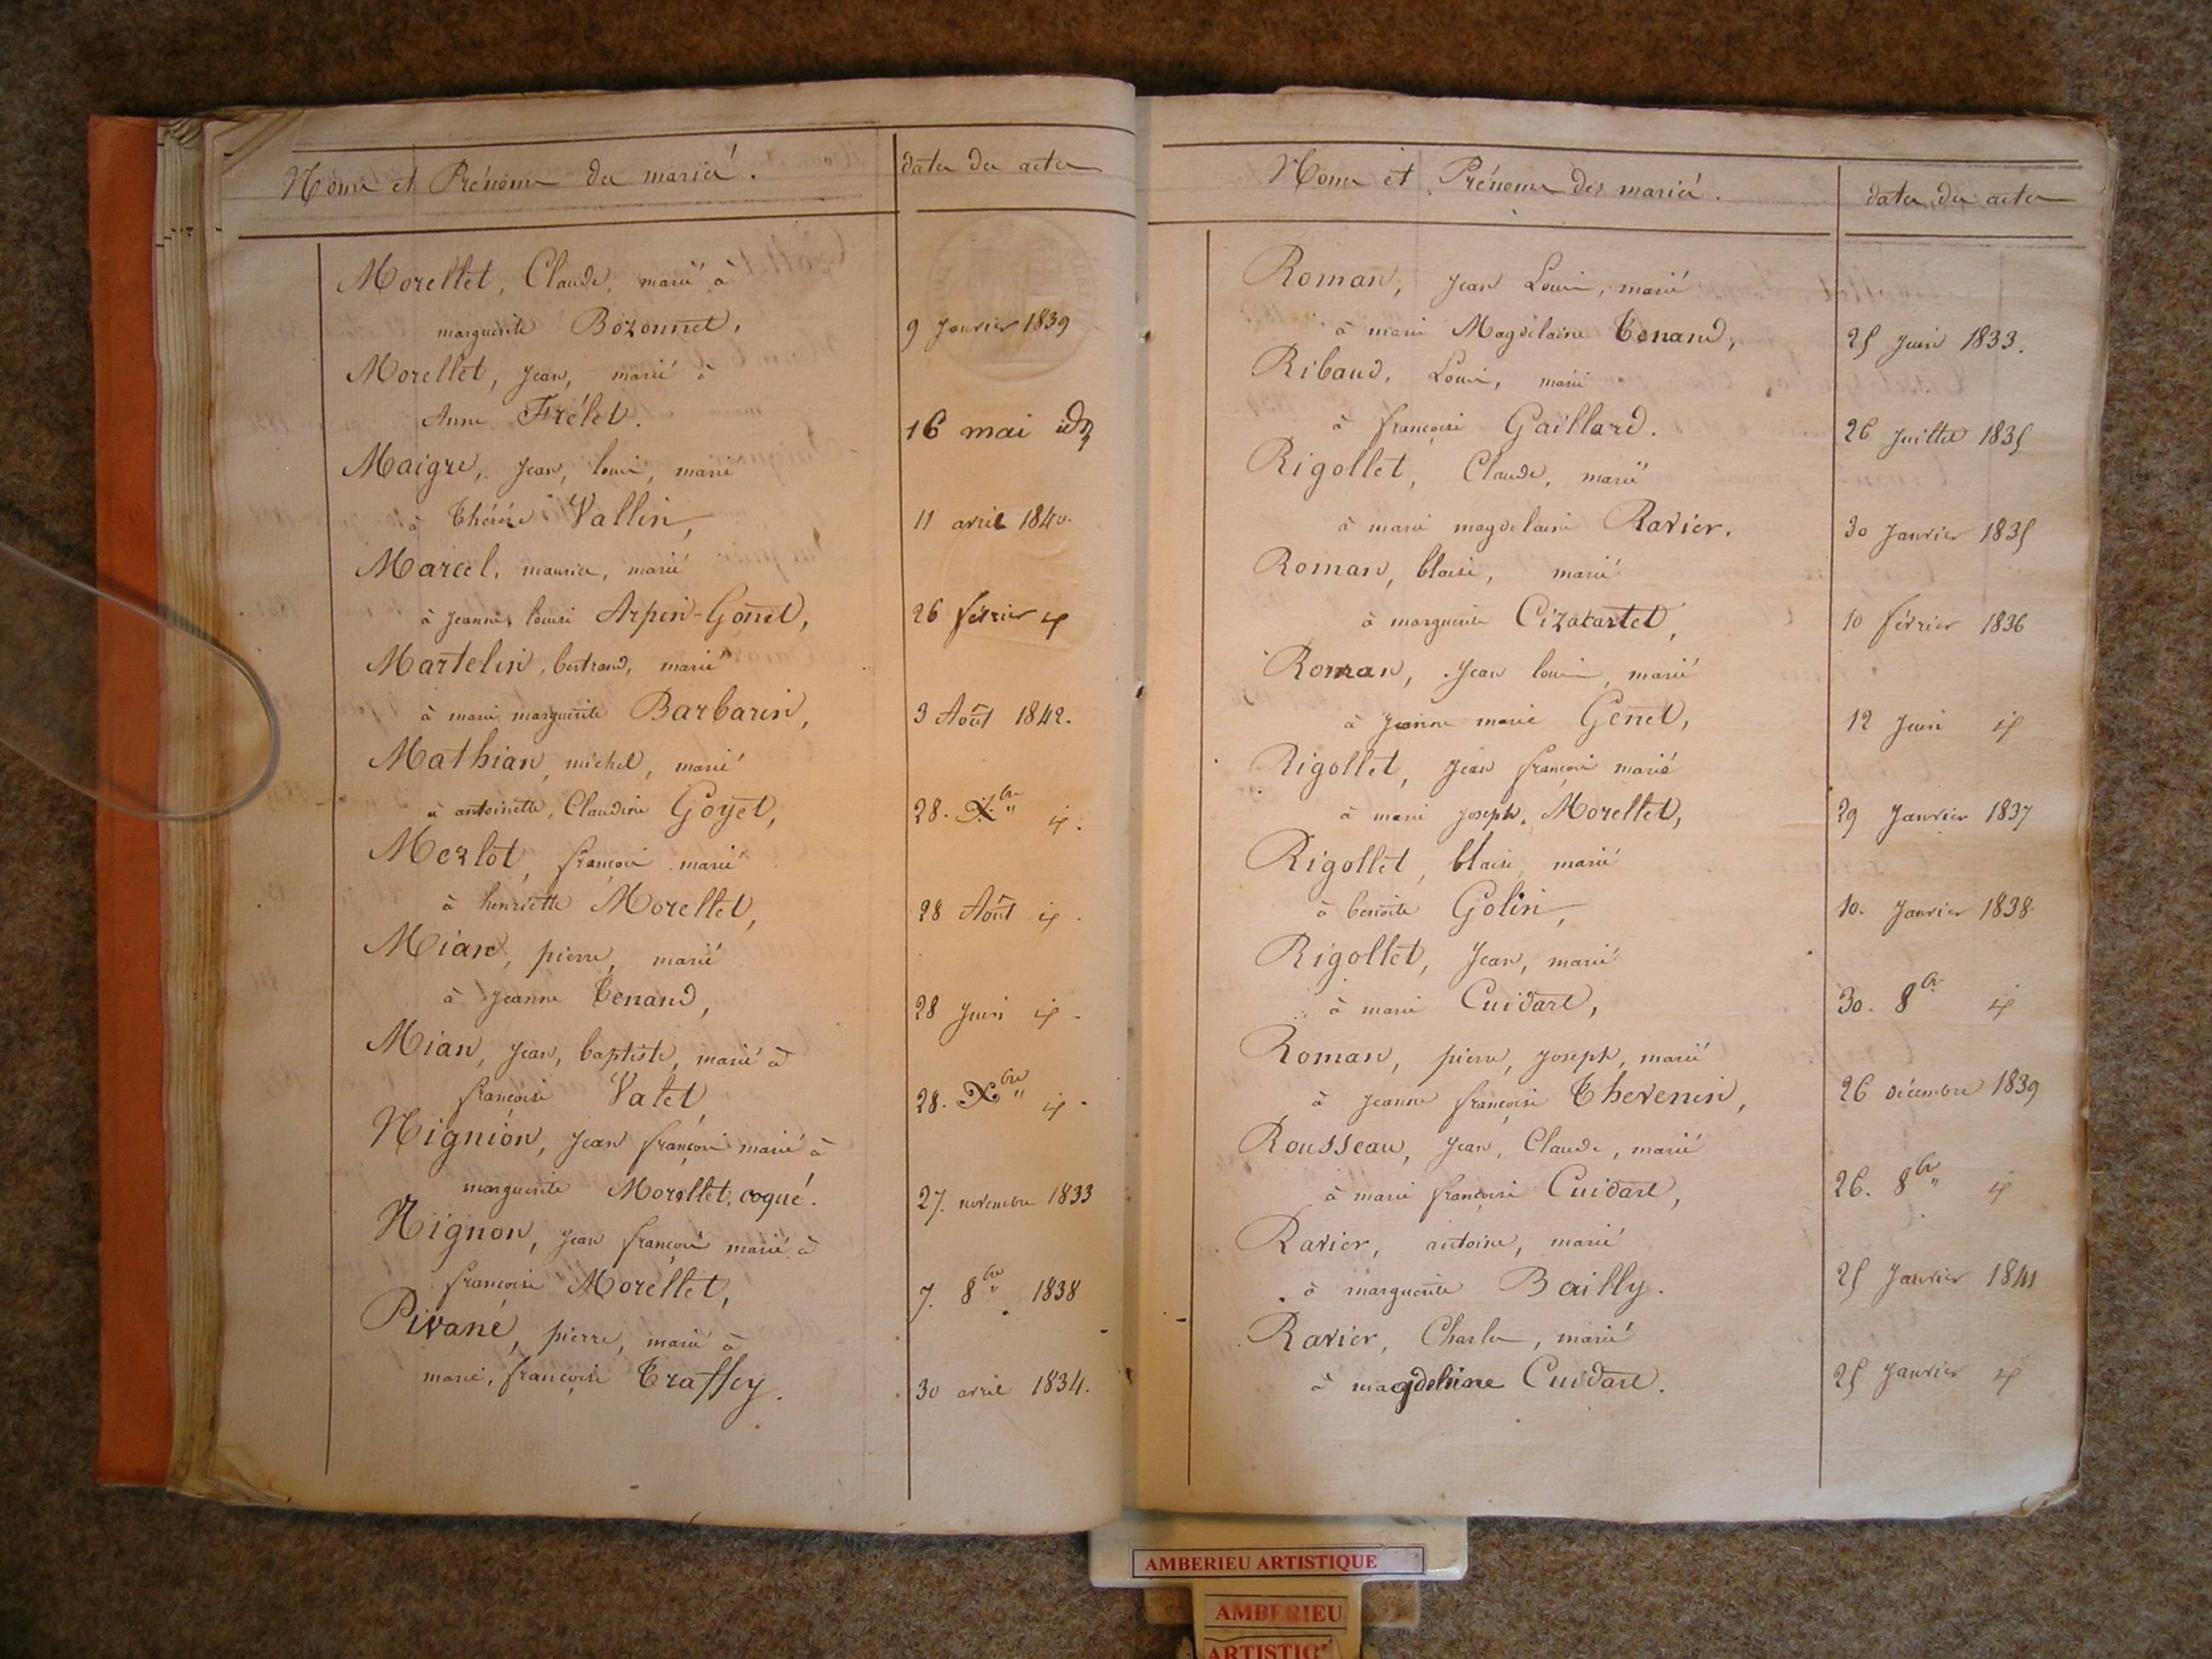 Noms et Prénoms des mariés. dates des actes
Morellet, Claude, marié à
marguerite Bozonnet, 9 Janvier 1839
Morellet, Jean, marié à
Anne Frélet. 16 mai id
Maigre, Jean, louis, marié
à Thérèse Vallin, 11 avril 1840.
Marcel, maurice, marié
à jeanne, louise Arpin-Gonet, 26 février id
Martelin, bertrand, marié
à marie marguerite Barbarin, 3 Août 1842.
Mathian, michel, marié
à antoinette, Claudine Goyet, 28. Xbre id.
Merlot, françois marié
à henriette Morellet, 28 Août id.
Mian, pierre, marié
à Jeanne Tenand, 28 Juin id.
Mian, Jean, baptiste, marié à
françoise Valet, 28. Xbre id.
Nignion, Jean françois marié à
marguerite Morellet, coqué. 27. novembre 1833
Nignon, Jean françois marié à
françoise Morellet, 7. 8bre 1838
Pivané, pierre, marié à
marie, françoise Traffey. 30 avril 1834.
Noms et Prénoms des mariés. dates des actes
Roman, Jean Louis, marié
à marie Magdelaine Tenand, 25 Juin 1833.
Ribaud, Louis, marié
à françoise Gaillard. 26 Juillet 1835
Rigollet, Claude, marié
à marie magdelaine Ravier. 30 Janvier 1835
Roman, blaise, marié
à marguerite Cizatartet, 10 février 1836
Roman, Jean louis, marié
à Jeanne marie Genet, 12 Juin id
Rigollet, Jean françois marié
à marie joseph. Morellet, 29 Janvier 1837
Rigollet, blaise marié
à benoite Golin, 10. Janvier 1838
Rigollet, Jean, marié
à marie Cuidart, 30. 8bre id
Roman, pierre, joseph, marié
à Jeanne françoise Thevenin, 26 décembre 1839
Rousseau, Jean, Claude, marié
à marie françoise Cuidart, 26. 8bre id
Ravier, antoine, marié
à marguerite Bailly. 25 Janvier 1841
Ravier, Charles, marié
à magdeleine Cuidart. 25 Janvier id
AMBERIEU ARTISTIQUE
AMBERIEU
ARTISTIQ